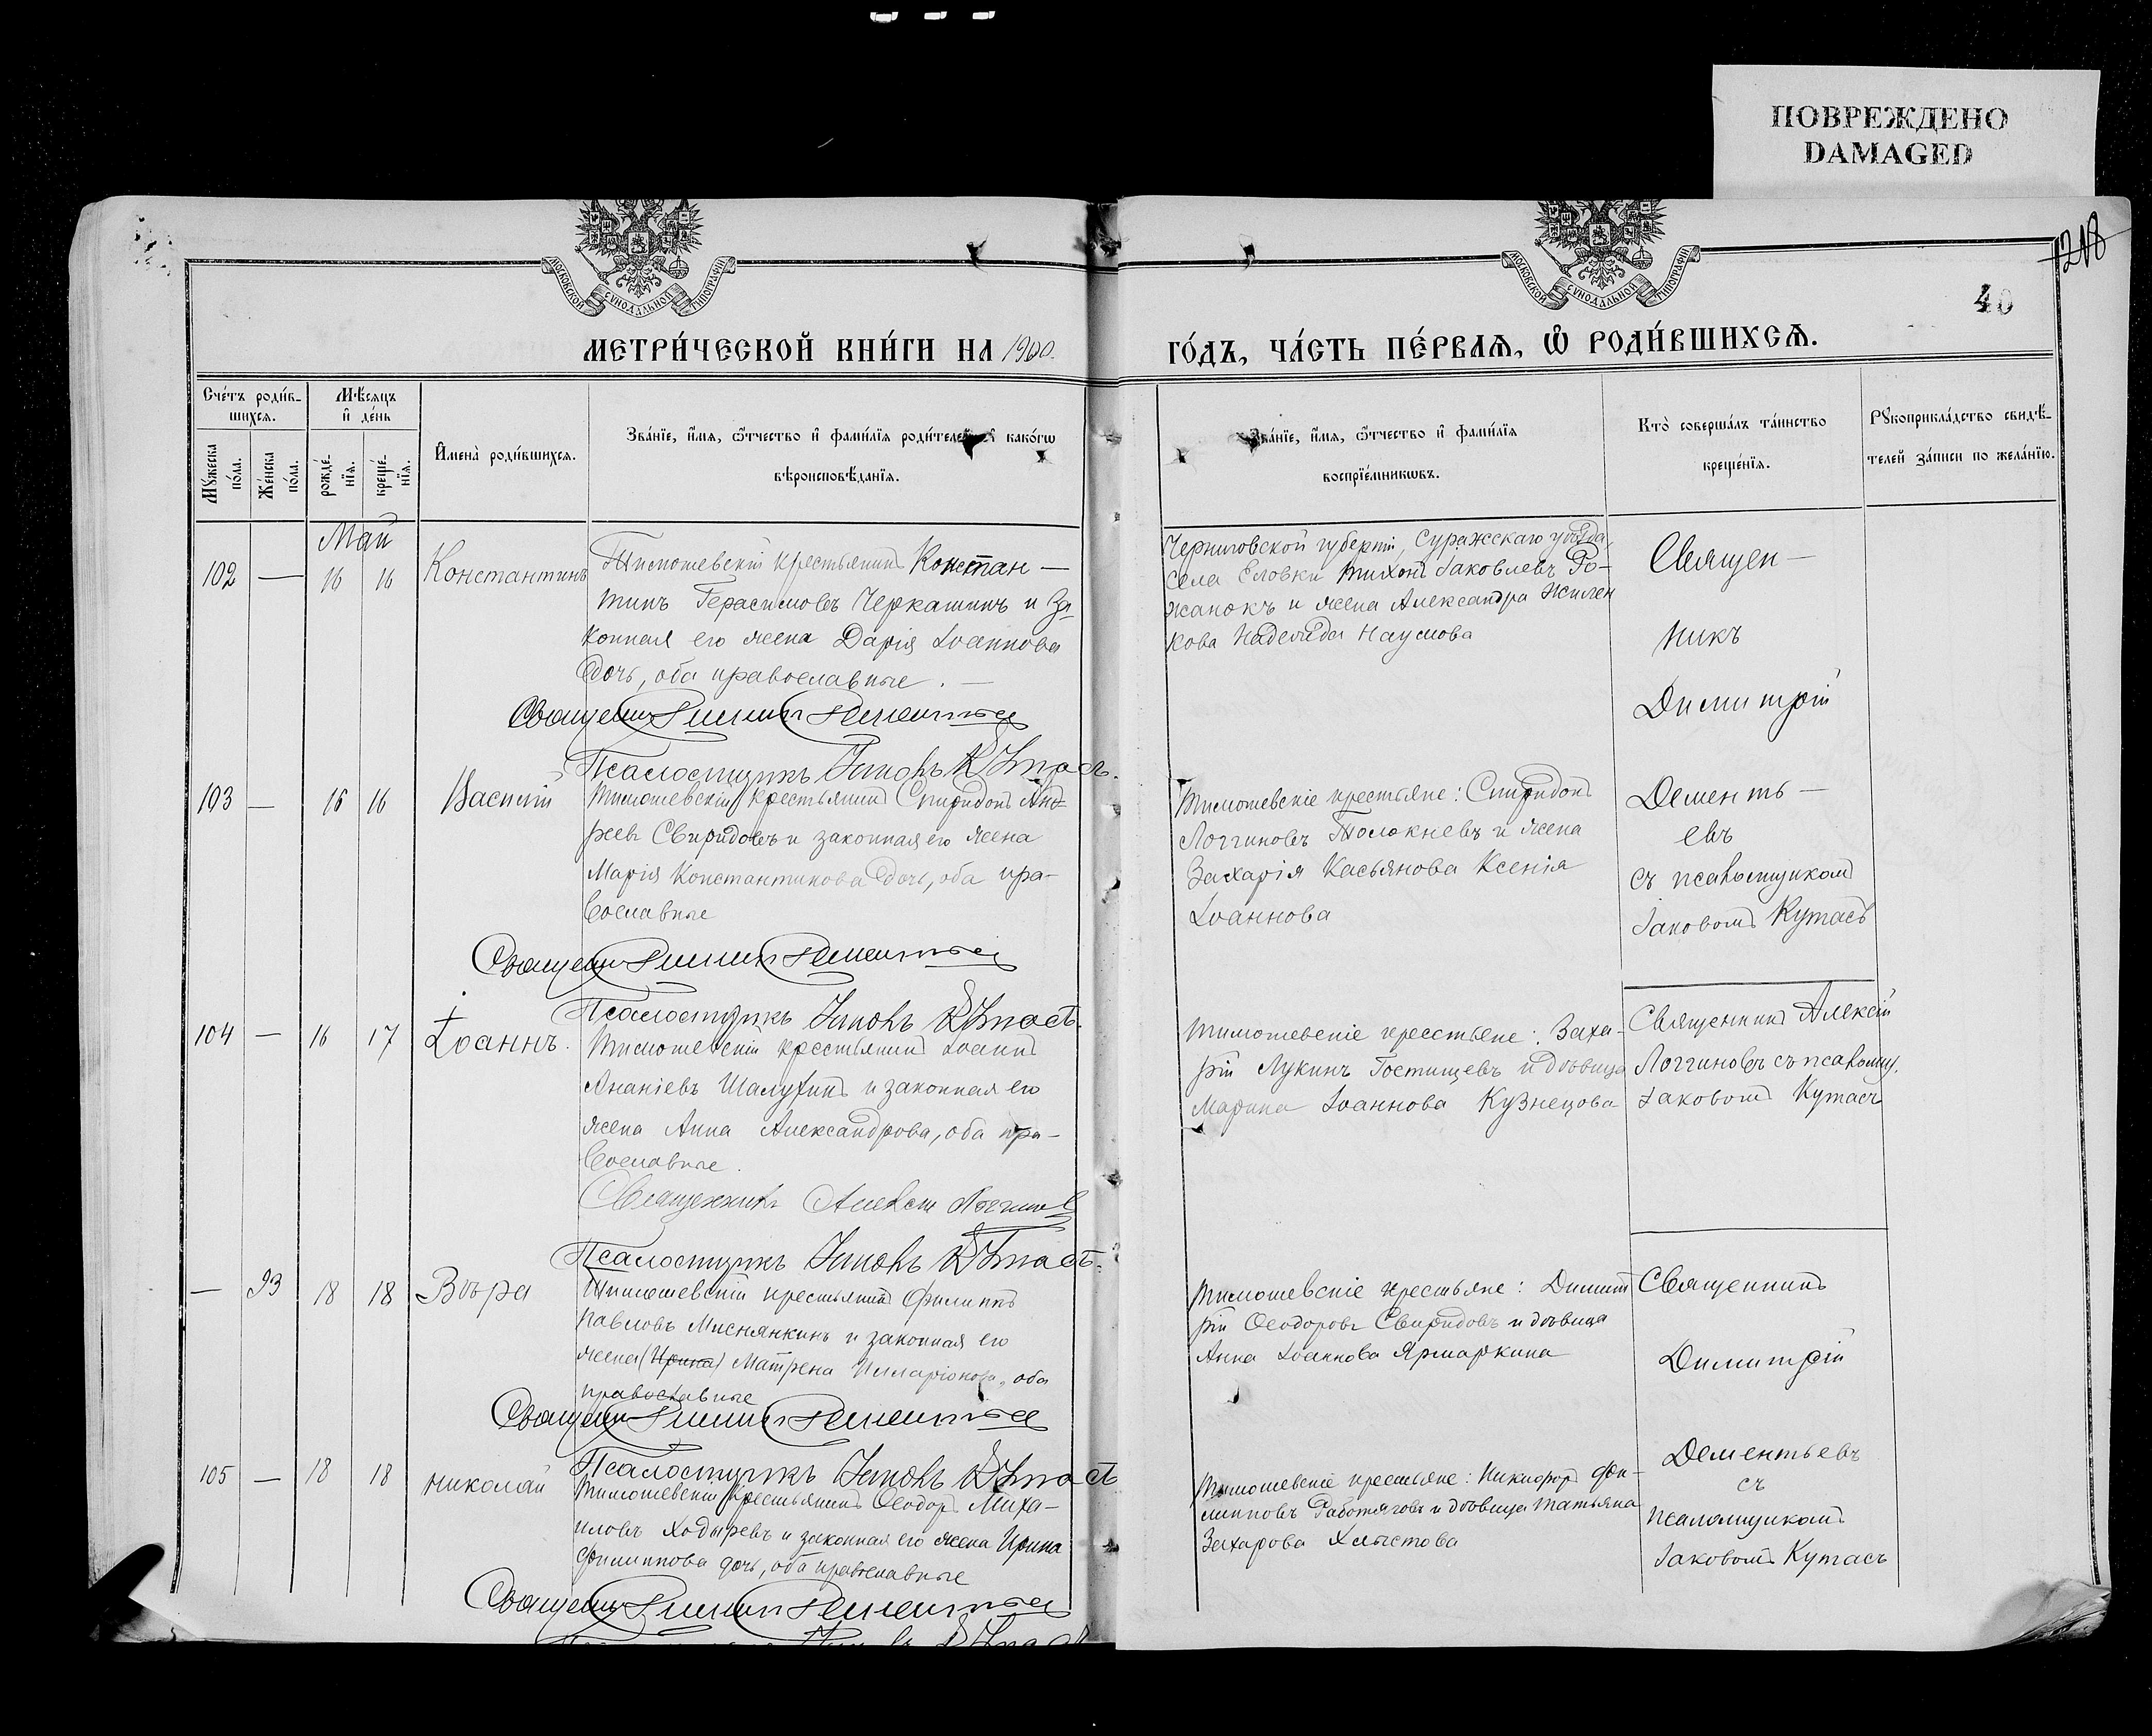 ПОВРЕЖДЕНО
DAMAGED
МОСКОВСКОЙ СУНОДАЛЬНОЙ ТИПОГРАФІИ
МОСКОВСКОЙ СУНОДАЛЬНОЙ ТИПОГРАФІИ
40
МЕТРИ́ЧЕСКОЙ КНИ́ГИ НА 1900.
ГО́ДЪ, ЧА́СТЬ ПЕ́РВАѦ, Ѡ РОДИ́ВШИХСѦ.
Сче́тъ роди́в-
шихся.
Мѣ́сяцъ
и де́нь
Мꙋ́жеска
по́ла.
Же́нска
по́ла.
рожде́-
нїя.
креще́-
нїя.
И҆мена̀ роди́вшихся.
Зва́нїе, и҆́мя, ѻ҆́тчество и҆ фами́лїя роди́телей, и҆ како́гѡ
вѣроисповѣ́данїя.
Зва́нїе, и҆́мя, ѻ҆́тчество и҆ фами́лїя
воспрїе́мникѡвъ.
Кто̀ соверша́лъ та́инство
креще́нїя.
Рꙋкоприкла́дство свидѣ́-
телей за́писи по жела́нїю.
Май
102 — 16 16 Константинъ
Тимошевскій крестьянинъ Констан-
тинъ Герасимовъ Черкашинъ и за-
конная его жена Дарія Іоаннова
дочь, оба православные. —
Священ Димит Дементьев
Псаломщикъ Іаковъ Кутасъ.
Черниговской губерніи, Суражскаго уѣзда,
села Еловки Тихонъ Іаковлевъ Ро-
жанокъ и жена Александра Жилен
кова Надежда Наумова
Священ —
никъ
Димитрій
103 — 16 16 Василій
Тимошевскій крестьянинъ Спиридонъ Анд-
реевъ Свиридовъ и законная его жена
Марія Константинова дочь, оба пра-
вославные
Священ Димит Дементьев
Псаломщикъ Іаковъ Кутасъ.
Тимошевскіе крестьяне: Спиридонъ
Логгиновъ Толокневъ и жена
Захарія Касьянова Ксенія
Іоаннова
Дементь —
евъ
съ псаломщикомъ
Іаковомъ Кутасъ
104 — 16 17 Іоаннъ.
Тимошевскій крестьянинъ Іоаннъ
Ананіевъ Шалухинъ и законная его
жена Анна Александрова, оба пра-
вославные.
Священникъ Алексій Логгинов
Псаломщикъ Іаковъ Кутасъ.
Тимошевскіе крестьяне: Заха-
рій Лукинъ Гостищевъ и дѣвица
Марина Іоаннова Кузнецова
Священникъ Алексій
Логгиновъ съ псаломщ.
Іаковомъ Кутасъ
— 93 18 18 Вѣра
Тимошевскій крестьянинъ Филиппъ
Павловъ Миснянкинъ и законная его
жена (Ирина) Матрена Илларіонова, оба
православные
Священ Димит Дементьев
Псаломщикъ Іаковъ Кутасъ
Тимошевскіе крестьяне: Димит
рій Ѳеодоровъ Свиридовъ и дѣвица
Анна Іоаннова Ярмаркина
Священникъ
Димитрій
105 — 18 18 Николай
Тимошевскій крестьянинъ Ѳеодоръ Миха-
иловъ Ходыревъ и законная его жена Ирина
Филиппова дочь, оба православные
Священ Димит Дементьев
Тимошевскіе крестьяне: Никифоръ Фи-
липповъ Работяговъ и дѣвица Татьяна
Захарова Хлыстова
Дементьевъ
съ
псаломщикомъ
Іаковомъ Кутасъ